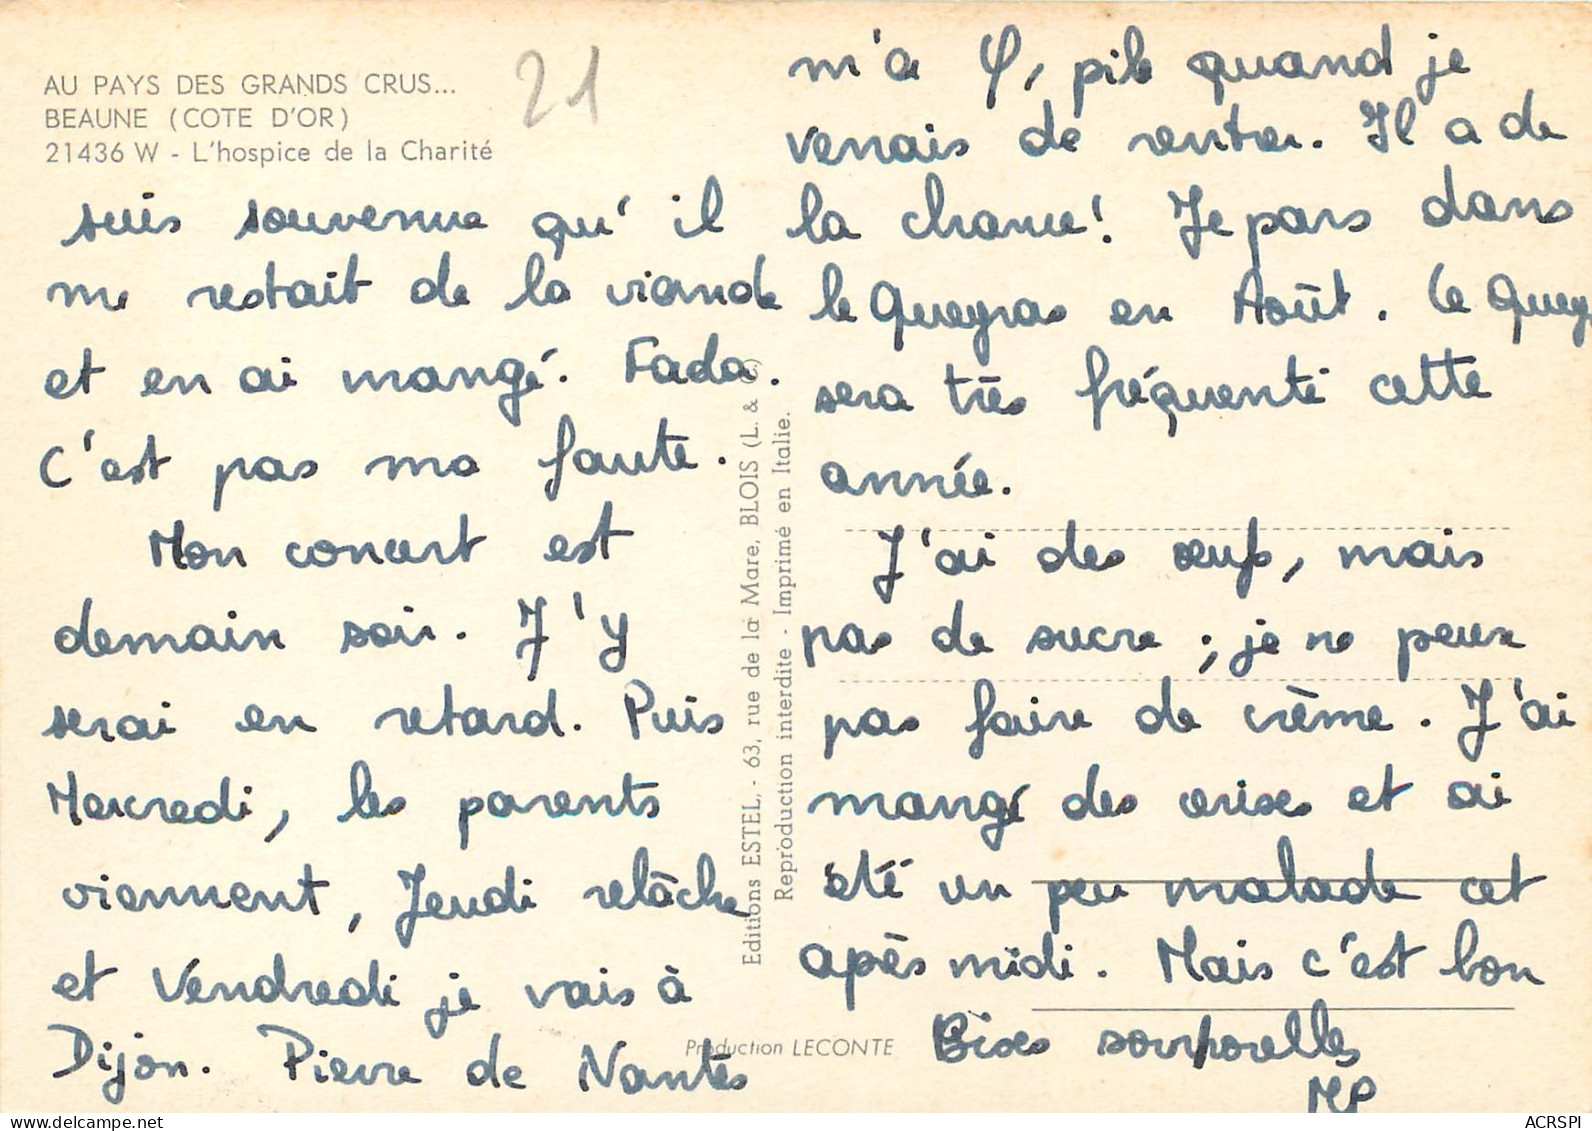 AU PAYS DES GRANDS CRUS...
BEAUNE (COTE D'OR)
21436 W - L'hospice de la Charité
21
suis souvenue qu'il
me restait de la viande
et en ai mangé. Fada.
C'est pas ma faute.
Mon concert est
demain soir. J'y
serai en retard. Puis
Mercredi, les parents
viennent, Jeudi relâche
et Vendredi je vais à
Dijon. Pierre de Nantes
Editions ESTEL, - 63, rue de la Mare, BLOIS (L. & C.)
Reproduction interdite - Imprimé en Italie.
Production LECONTE
m'a φ, pile quand je
venais de rentrer. Il a de
la chance! Je pars dans
le Queyras en Août. Le Quey.
sera très fréquenté cette
année.
J'ai des oeufs, mais
pas de sucre ; je ne peux
pas faire de crème. J'ai
mangé des cerises et ai
été un peu malade cet
après midi. Mais c'est bon
Bises
MP
ACRSPI